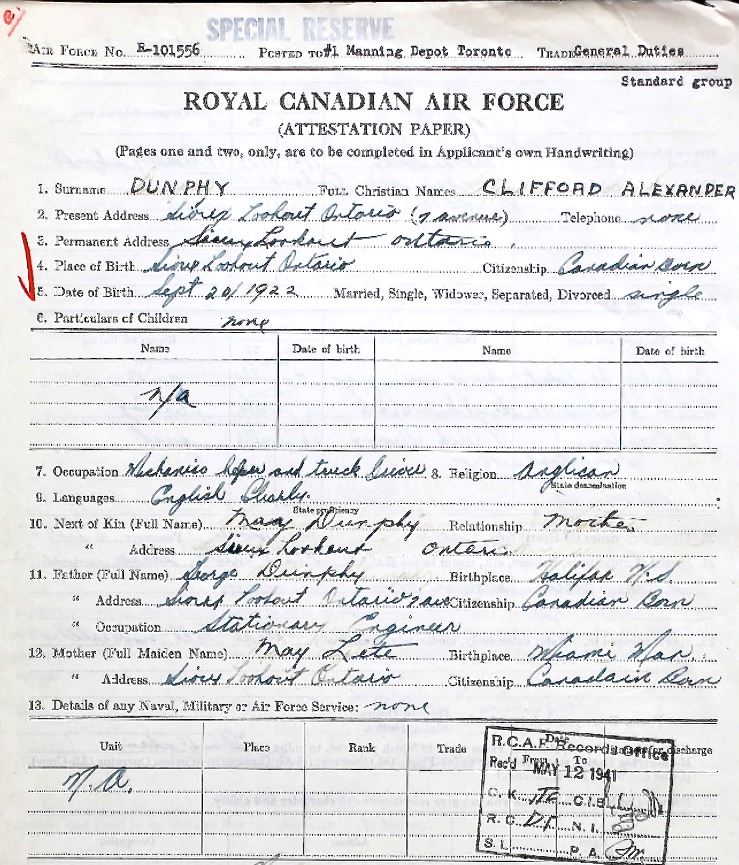 SPECIAL RESERVE
AIR FORCE NO. R-101556 POSTED TO #1 Manning Depot Toronto TRADE General Duties
Standard group
ROYAL CANADIAN AIR FORCE
(ATTESTATION PAPER)
(Pages one and two, only, are to be completed in Applicant's own Handwriting)
1. Surname DUNPHY Full Christian Names CLIFFORD ALEXANDER
2. Present Address Sioux Lookout Ontario (7 avenue) Telephone none
3. Permanent Address Sioux Lookout ontario.
4. Place of Birth Sioux Lookout Ontario Citizenship Canadian Born
5. Date of Birth Sept 20/1922 Married, Single, Widower, Separated, Divorced single
6. Particulars of Children none
Name Date of birth Name Date of birth
n/a
7. Occupation Mechanics helper and truck driver 8. Religion Anglican
State denomination
9. Languages English
State proficiency
10. Next of Kin (Full Name) May Dunphy Relationship Mother
" Address Sioux Lookout Ontario
11. Father (Full Name) George Dunphy Birthplace Halifax N.S.
" Address Sioux Lookout Ontario 7 ave Citizenship Canadian Born
" Occupation Stationary Engineer
12. Mother (Full Maiden Name) May Birthplace Miami Man.
" Address Sioux Lookout Ontario Citizenship Canadain Born
13. Details of any Naval, Military or Air Force Service: none
Unit Place Rank Trade Date discharge
From To
N.A.
R.C.A.F. Records Office
Rec'd MAY 12 1941
C.K. C.I.B.
R.C. N.I.
S.L. P.A.